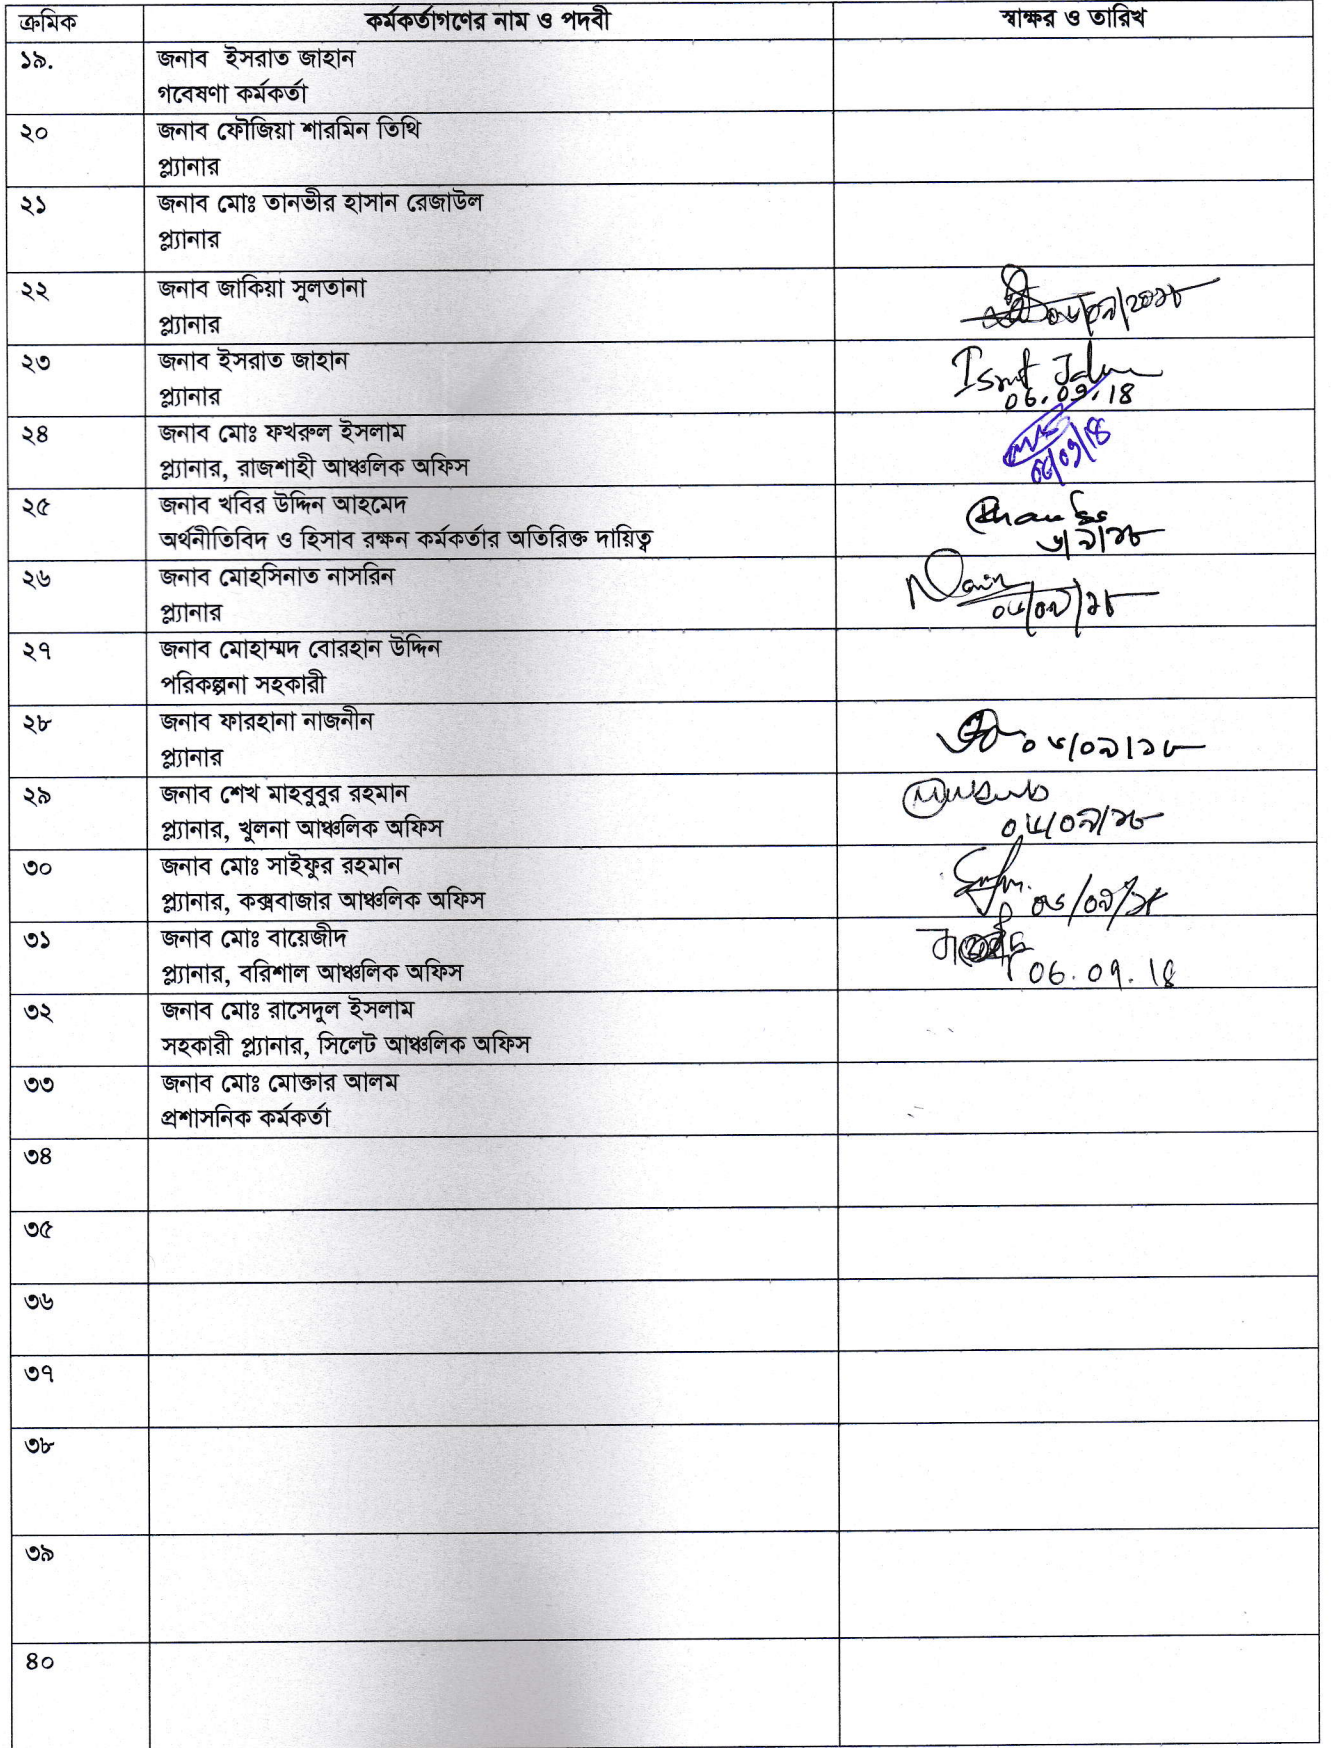 ক্রমিক কর্মকর্তাগণের নাম ও পদবী স্বাক্ষর ও তারিখ
১৯. জনাব ইসরাত জাহান
গবেষণা কর্মকর্তা
২০ জনাব ফৌজিয়া শারমিন তিথি
প্ল্যানার
২১ জনাব মোঃ তানভীর হাসান রেজাউল
প্ল্যানার
২২ জনাব জাকিয়া সুলতানা
প্ল্যানার ০৬/০৯/২০১৮
২৩ জনাব ইসরাত জাহান
প্ল্যানার 06.09.18
২৪ জনাব মোঃ ফখরুল ইসলাম
প্ল্যানার, রাজশাহী আঞ্চলিক অফিস
২৫ জনাব খবির উদ্দিন আহমেদ
অর্থনীতিবিদ ও হিসাব রক্ষন কর্মকর্তার অতিরিক্ত দায়িত্ব ৬/৯/১৮
২৬ জনাব মোহসিনাত নাসরিন
প্ল্যানার ০৬/০৯/১৮
২৭ জনাব মোহাম্মদ বোরহান উদ্দিন
পরিকল্পনা সহকারী
২৮ জনাব ফারহানা নাজনীন
প্ল্যানার ০৬/০৯/১৮
২৯ জনাব শেখ মাহবুবুর রহমান
প্ল্যানার, খুলনা আঞ্চলিক অফিস ০৬/০৯/১৮
৩০ জনাব মোঃ সাইফুর রহমান
প্ল্যানার, কক্সবাজার আঞ্চলিক অফিস ০৬/০৯/১৮
৩১ জনাব মোঃ বায়েজীদ
প্ল্যানার, বরিশাল আঞ্চলিক অফিস 06.09.18
৩২ জনাব মোঃ রাসেদুল ইসলাম
সহকারী প্ল্যানার, সিলেট আঞ্চলিক অফিস
৩৩ জনাব মোঃ মোক্তার আলম
প্রশাসনিক কর্মকর্তা
৩৪
৩৫
৩৬
৩৭
৩৮
৩৯
৪০